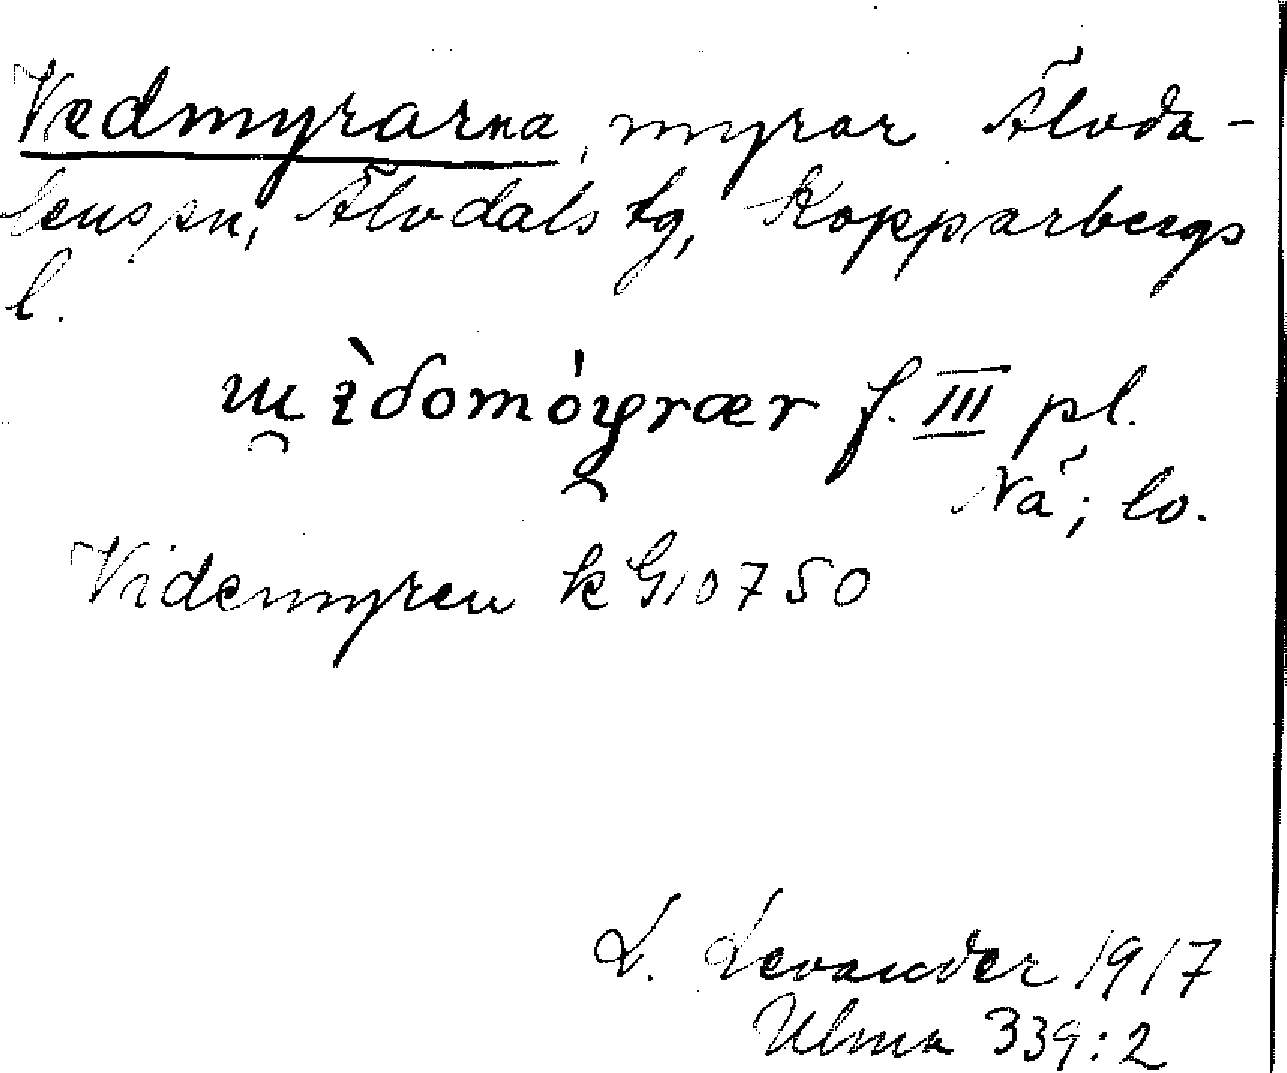 Vedmyrarna, myrar Älvda-
lens sn, Älvdals tg, Kopparbergs
l.
f. III pl.
Nä; lo.
Videnmyren k G10750
L. Levander 1917
Ulma 339:2